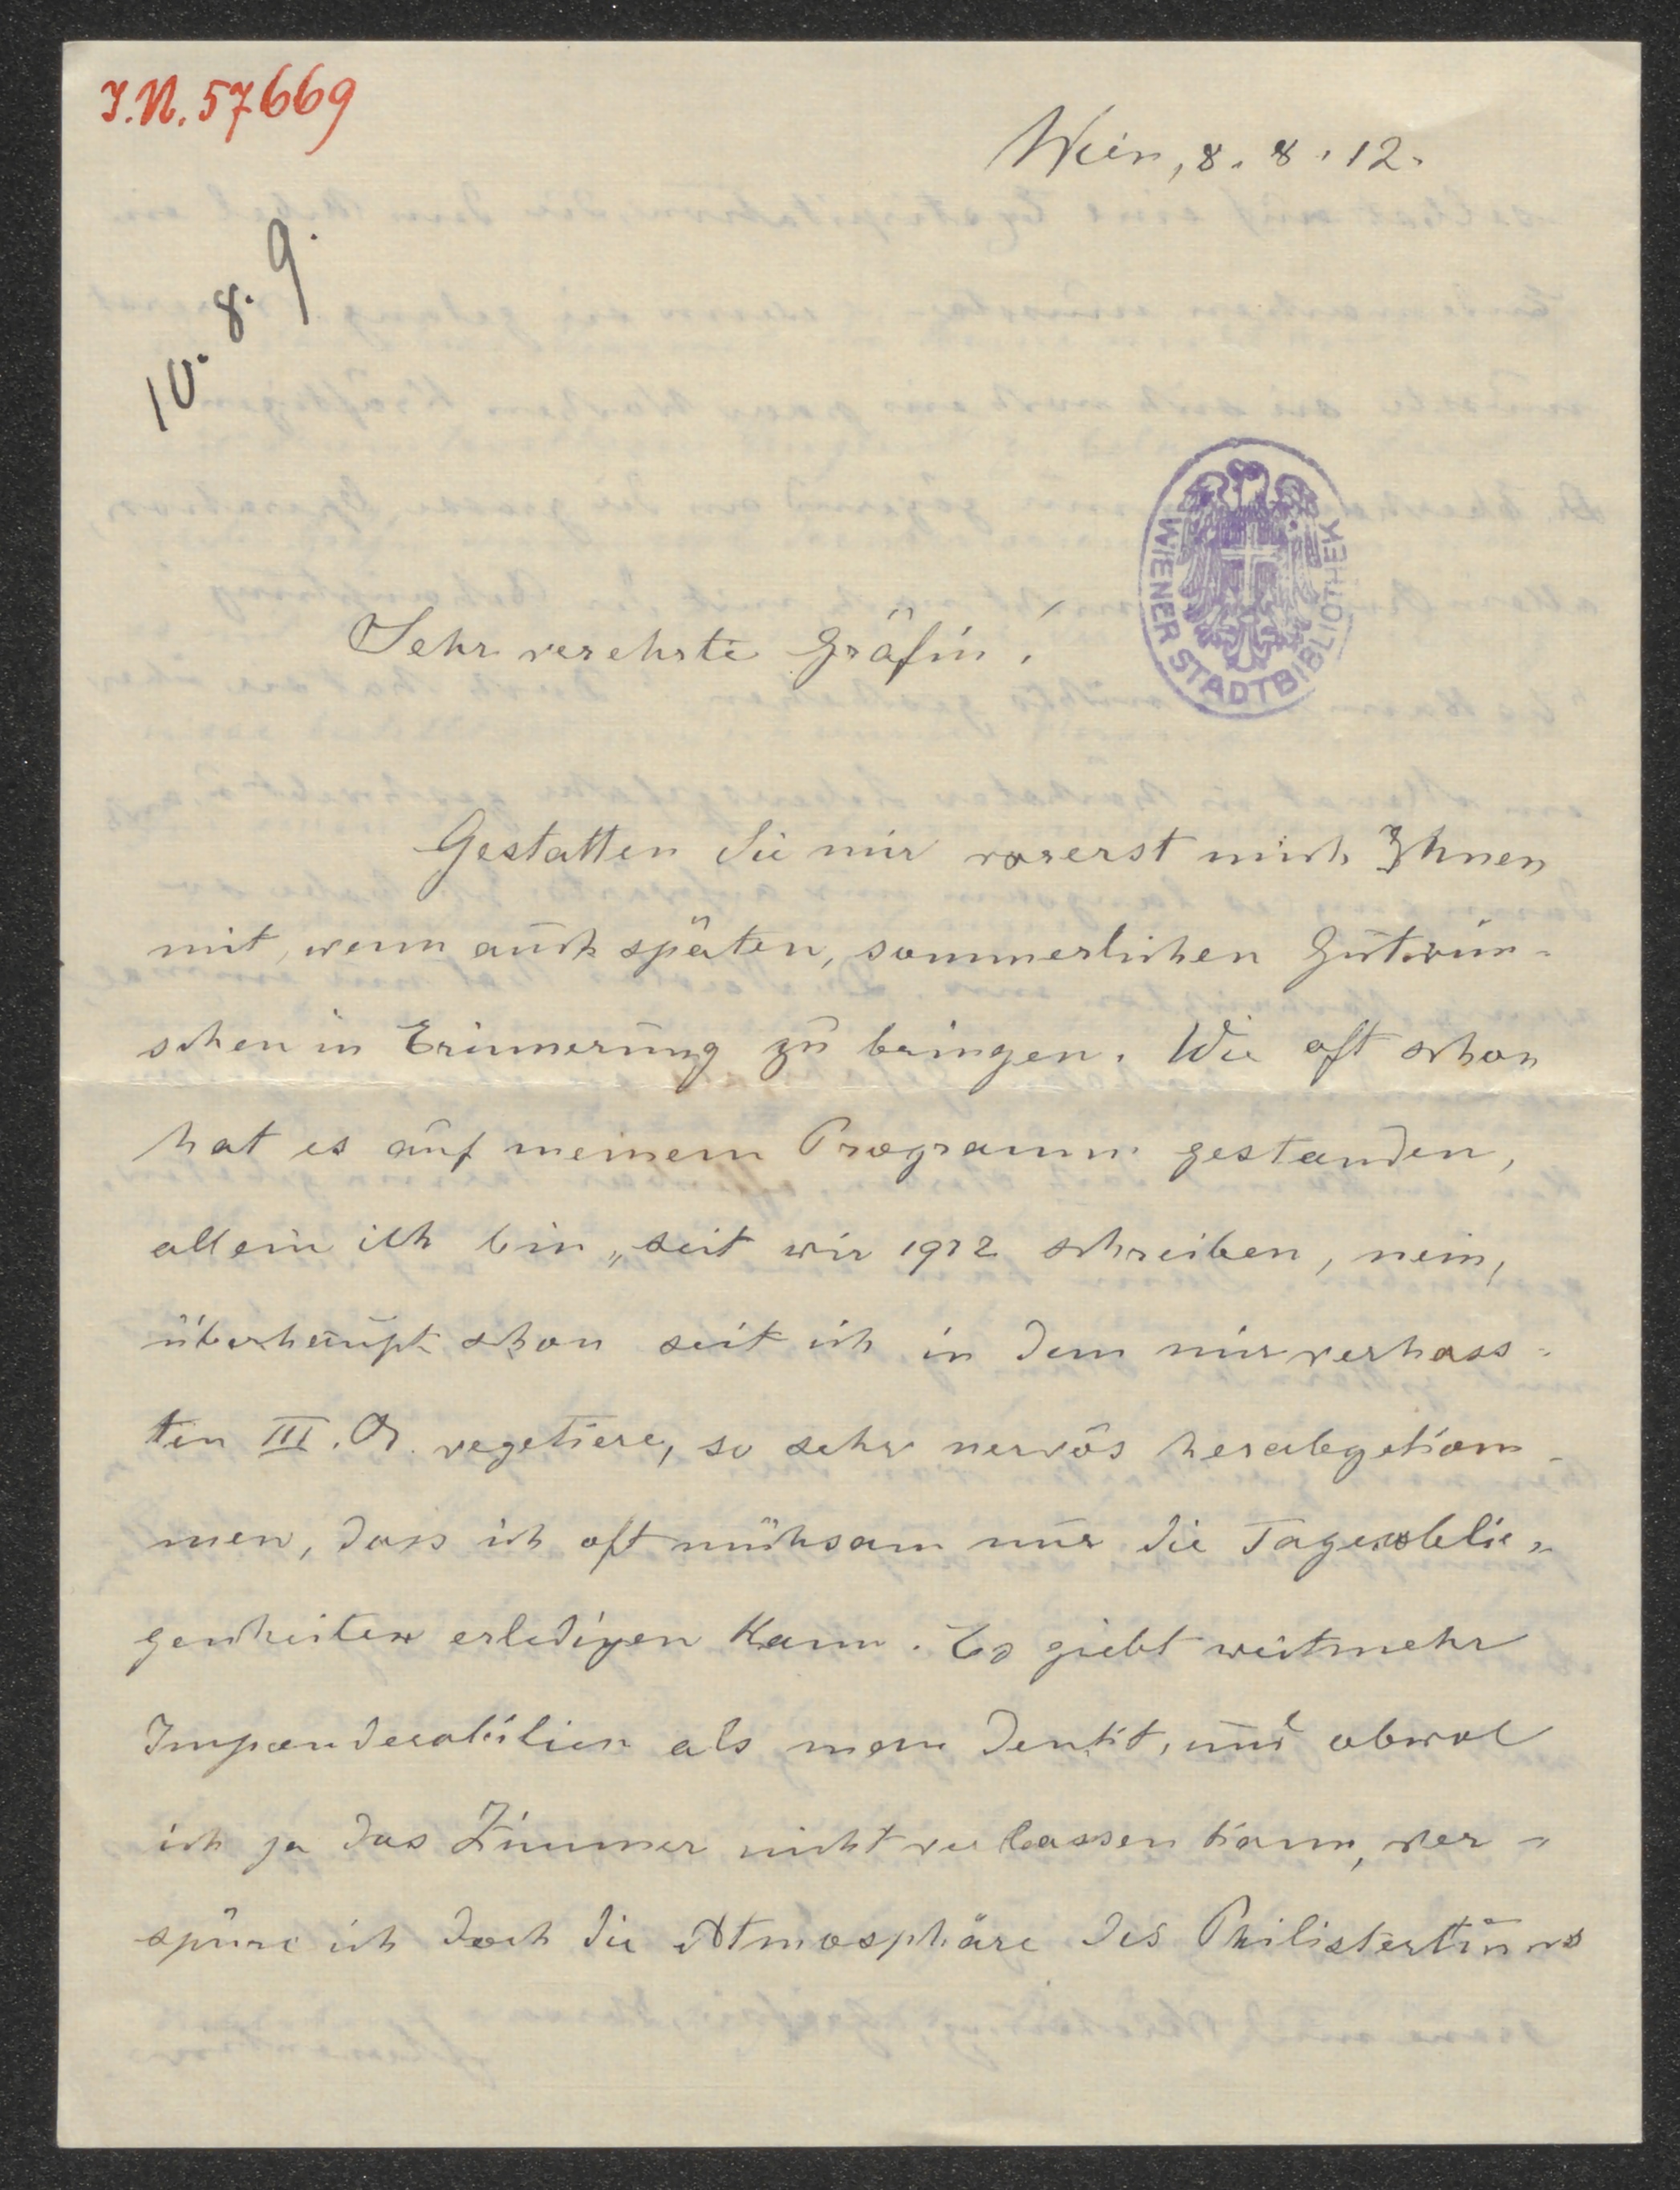 I.N. 57669
Wien, 8. 8. 12.
10. 8. 9.
WIENER STADTBIBLIOTHEK
Sehr verehrte Gräfin!
Gestatten Sie mir vorerst mich Ihnen
mit, wenn auch späten, sommerlichen Gutwün-
schen in Erinnerung zu bringen. Wie oft schon
hat es auf meinem Programm gestanden,
allein ich bin, seit wir 1912 schreiben, nein,
überhaupt schon seit ich in dem mir verhass-
ten III. vegetiere, so sehr nervös herabgekom-
men, dass ich oft mühsam nur die Tagesoblie-
genheiten erledigen kann. Es giebt weitmehr
Imponderabilien als man denkt, und obwol
ich ja das Zimmer nicht verlassen kann, ver-
spüre ich doch die Atmosphäre des Philistertums